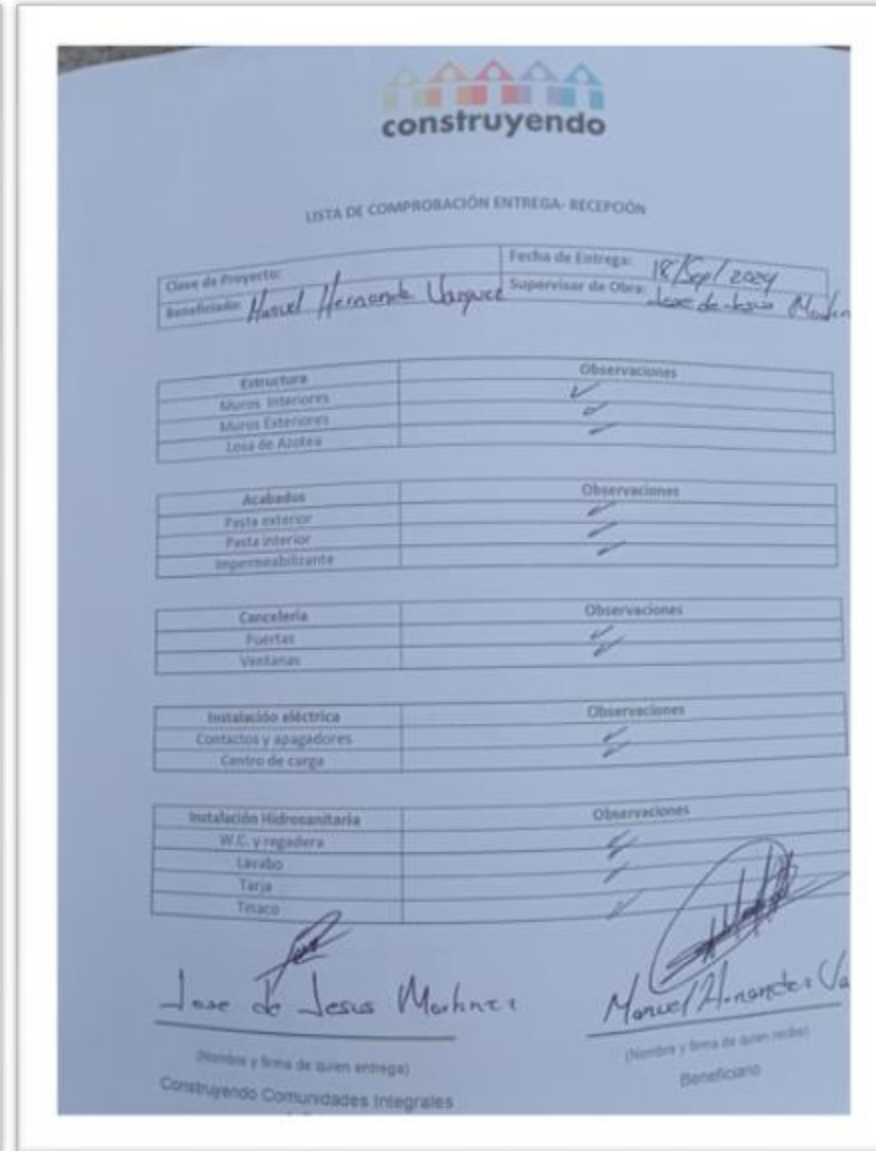 construyendo
LISTA DE COMPROBACIÓN ENTREGA- RECEPCIÓN
Clave de Proyecto: Fecha de Entrega: 18/Sep/2024
Beneficiado: Manuel Hernande Vazquez Supervisor de Obra: Jose de Jesus
Estructura Observaciones
Muros Interiores ✓
Muros Exteriores ✓
Losa de Azotea ✓
Acabados Observaciones
Pasta exterior ✓
Pasta interior ✓
Impermeabilizante ✓
Cancelería Observaciones
Puertas ✓
Ventanas ✓
Instalación eléctrica Observaciones
Contactos y apagadores ✓
Centro de carga ✓
Instalación Hidrosanitaria Observaciones
W.C. y regadera ✓
Lavabo ✓
Tarja ✓
Tinaco ✓
Jose de Jesus Martinez Manuel Hernandez Va
(Nombre y firma de quien entrega) (Nombre y firma de quien recibe)
Construyendo Comunidades Integrales Beneficiario